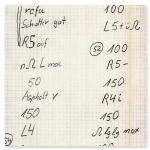 refu
Schotter gut
R5 auf
n.Ω L max
50
Asphalt v
150
L4
100
L5+ü.Ω
52 100
R5-
150
R4i
150
Ω lglg max